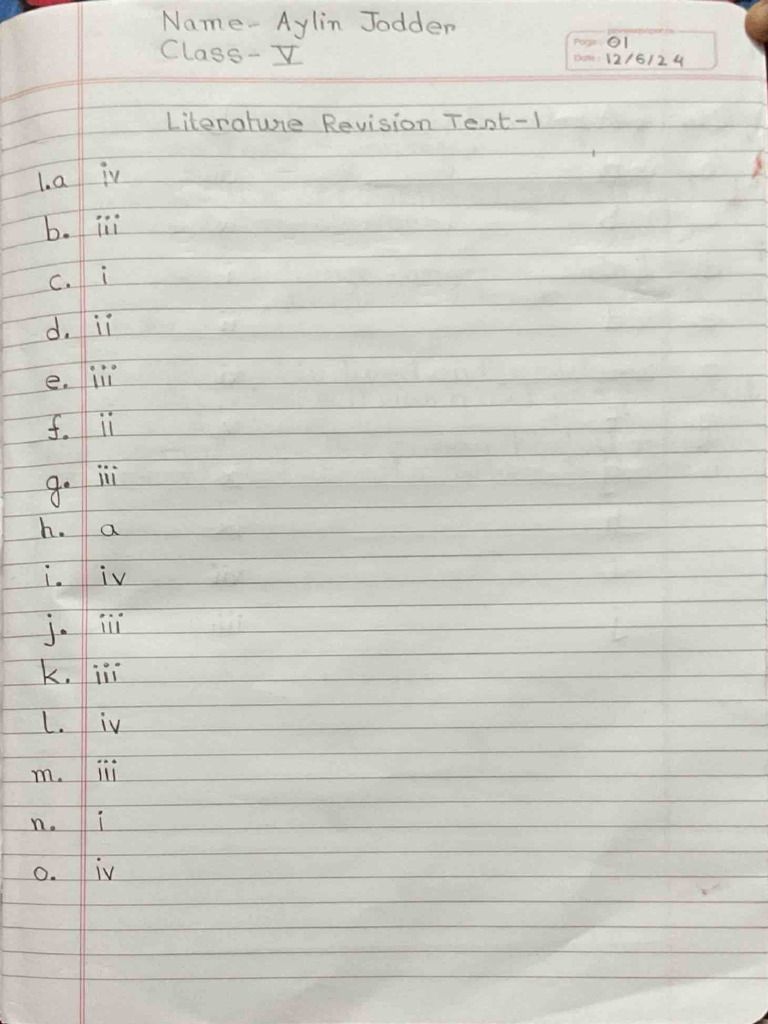 Name- Aylin Jodder
Class- V
Page: 01
Date: 12/6/24
Literature Revision Test-1
1.a iv
b. iii
c. i
d. ii
e. iii
f. ii
g. iii
h. a
i. iv
j. iii
k. iii
l. iv
m. iii
n. i
o. iv